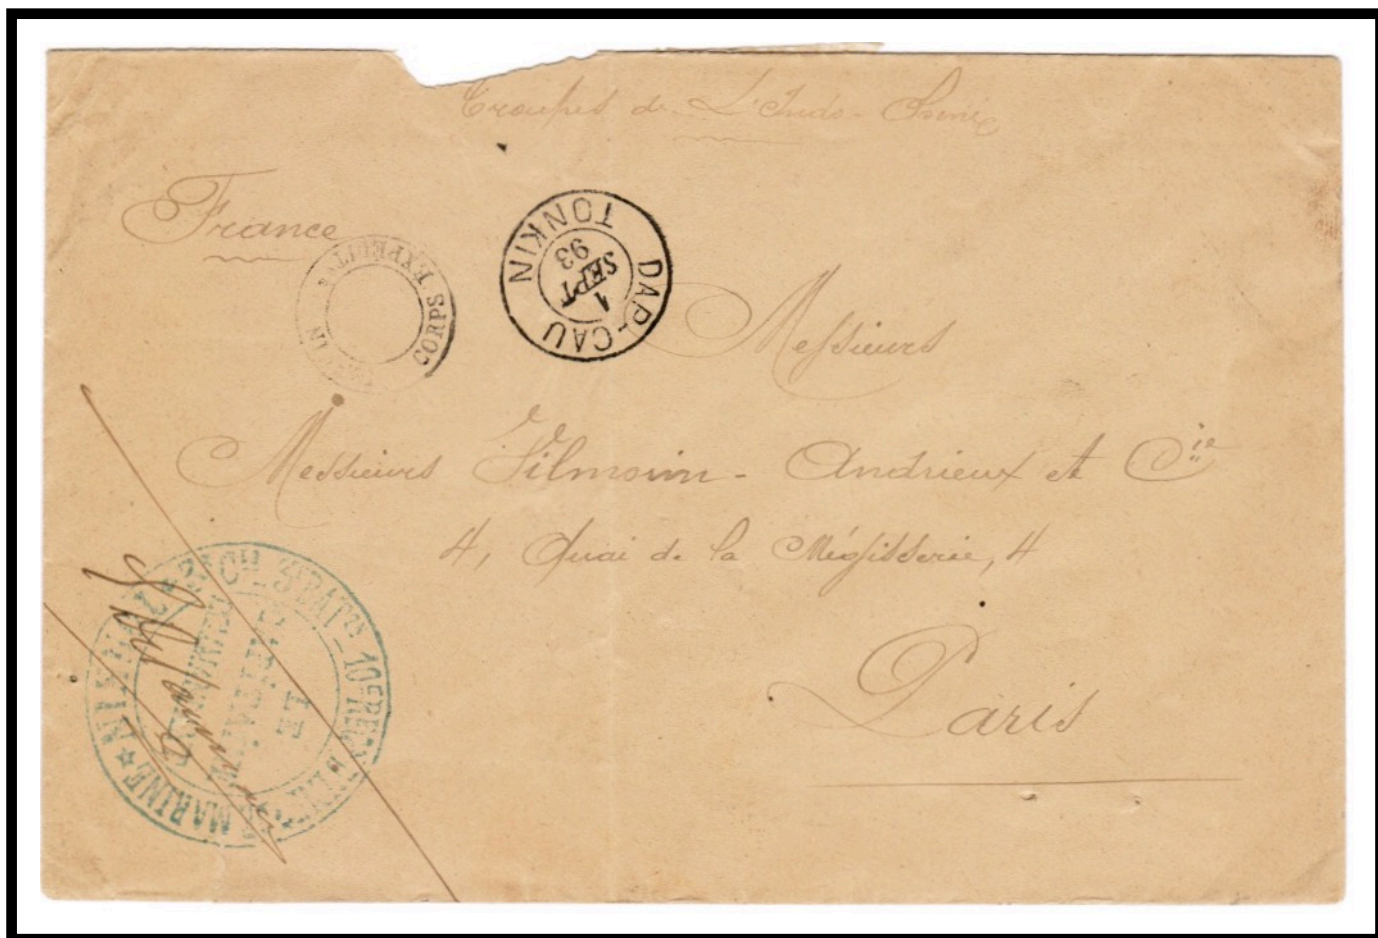 Troupes de L'Indo-Chine
France
CORPS EXPEDIT
DAP-CAU
TONKIN
1
SEPT
93
Messieurs
Messieurs Vilmorin - Andrieux et Cie
4, Quai de la Mégisserie, 4
Paris
3e BATon 10e REGt
MARINE
LE